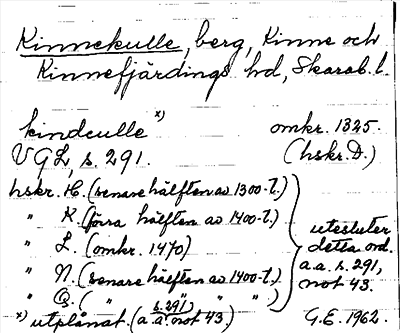 Kinnekulle, berg, Kinne och
Kinnefjärdings hd, Skarab. l.
kindculle x) omkr. 1325.
VGL, s. 291. (hskr. D.)
hskr. H. (senare hälften av 1300-t.)
" K (förra hälften av 1400-t.) utesluter
" L. (omkr. 1470) detta ord.
" N. (senare hälften av 1400-t.) a.a. s. 291,
" O. ( " " " ) not 43.
x) utplånat. (a.a. s. 291, not 43.) G.E. 1962.